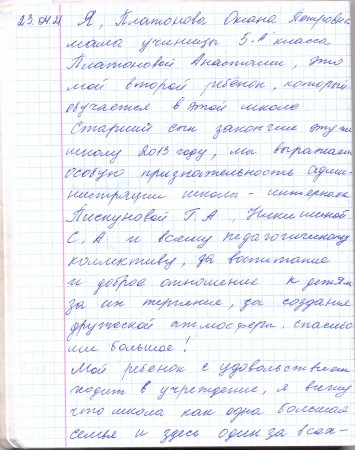 23.04.21 Я, Платонова Оксана Петровна
мама ученицы 5-А класса
Платоновой Анастасии, это
мой второй ребёнок, который
обучается в этой школе.
Старший сын закончил эту же
школу 2013 году, мы выражаем
особую признательность адми-
нистрации школы-интерната
Пискуновой Г.А., Никишиной
С.А. и всему педагогическому
коллективу, за воспитание
и доброе отношение к детям
за их терпение, за создание
дружеской атмосферы, спасибо
им большое!
Мой ребёнок с удовольствием
ходит в учреждение, я вижу
что школа как одна большая
семья и здесь один за всех-